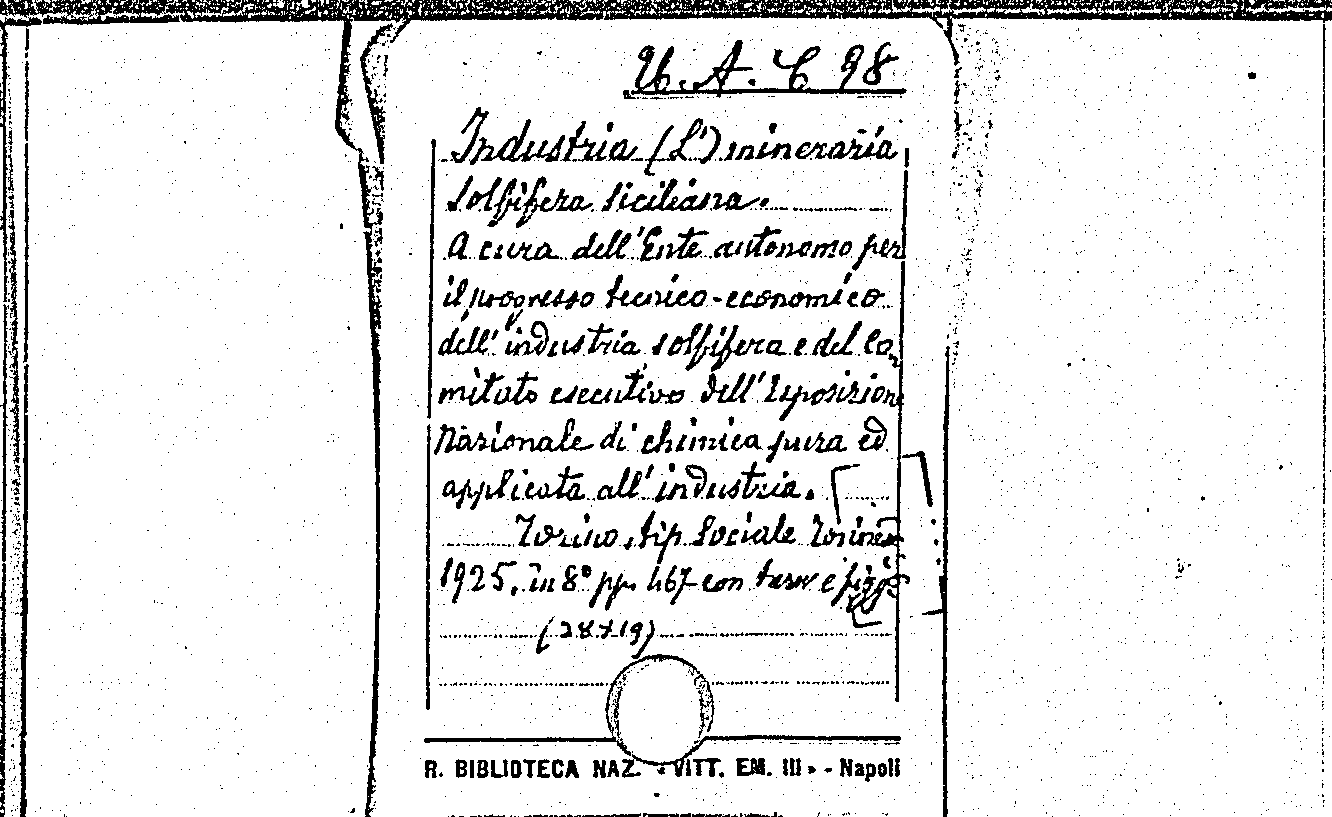 U. A. C 98
Industria (L') mineraria
solfifera siciliana.
A cura dell'Ente autonomo per
il progresso tecnico-economico
dell'industria solfifera e del Co,
mitato esecutivo dell'Esposizione
Nazionale di chimica pura ed
applicata all'industria.
Torino, tip Sociale
1925. in 8° pp. 467 con tavv e figg
(28×19)
R. BIBLIOTECA NAZ. « VITT. EM. III » - Napoli